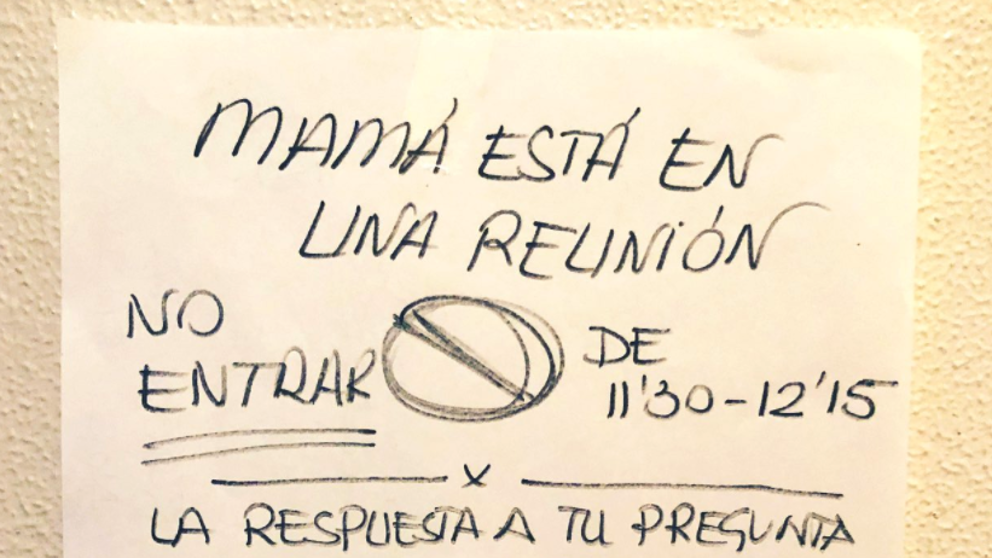 MAMÁ ESTÁ EN
UNA REUNIÓN
NO
ENTRAR
DE
11'30-12'15
x
LA RESPUESTA A TU PREGUNTA